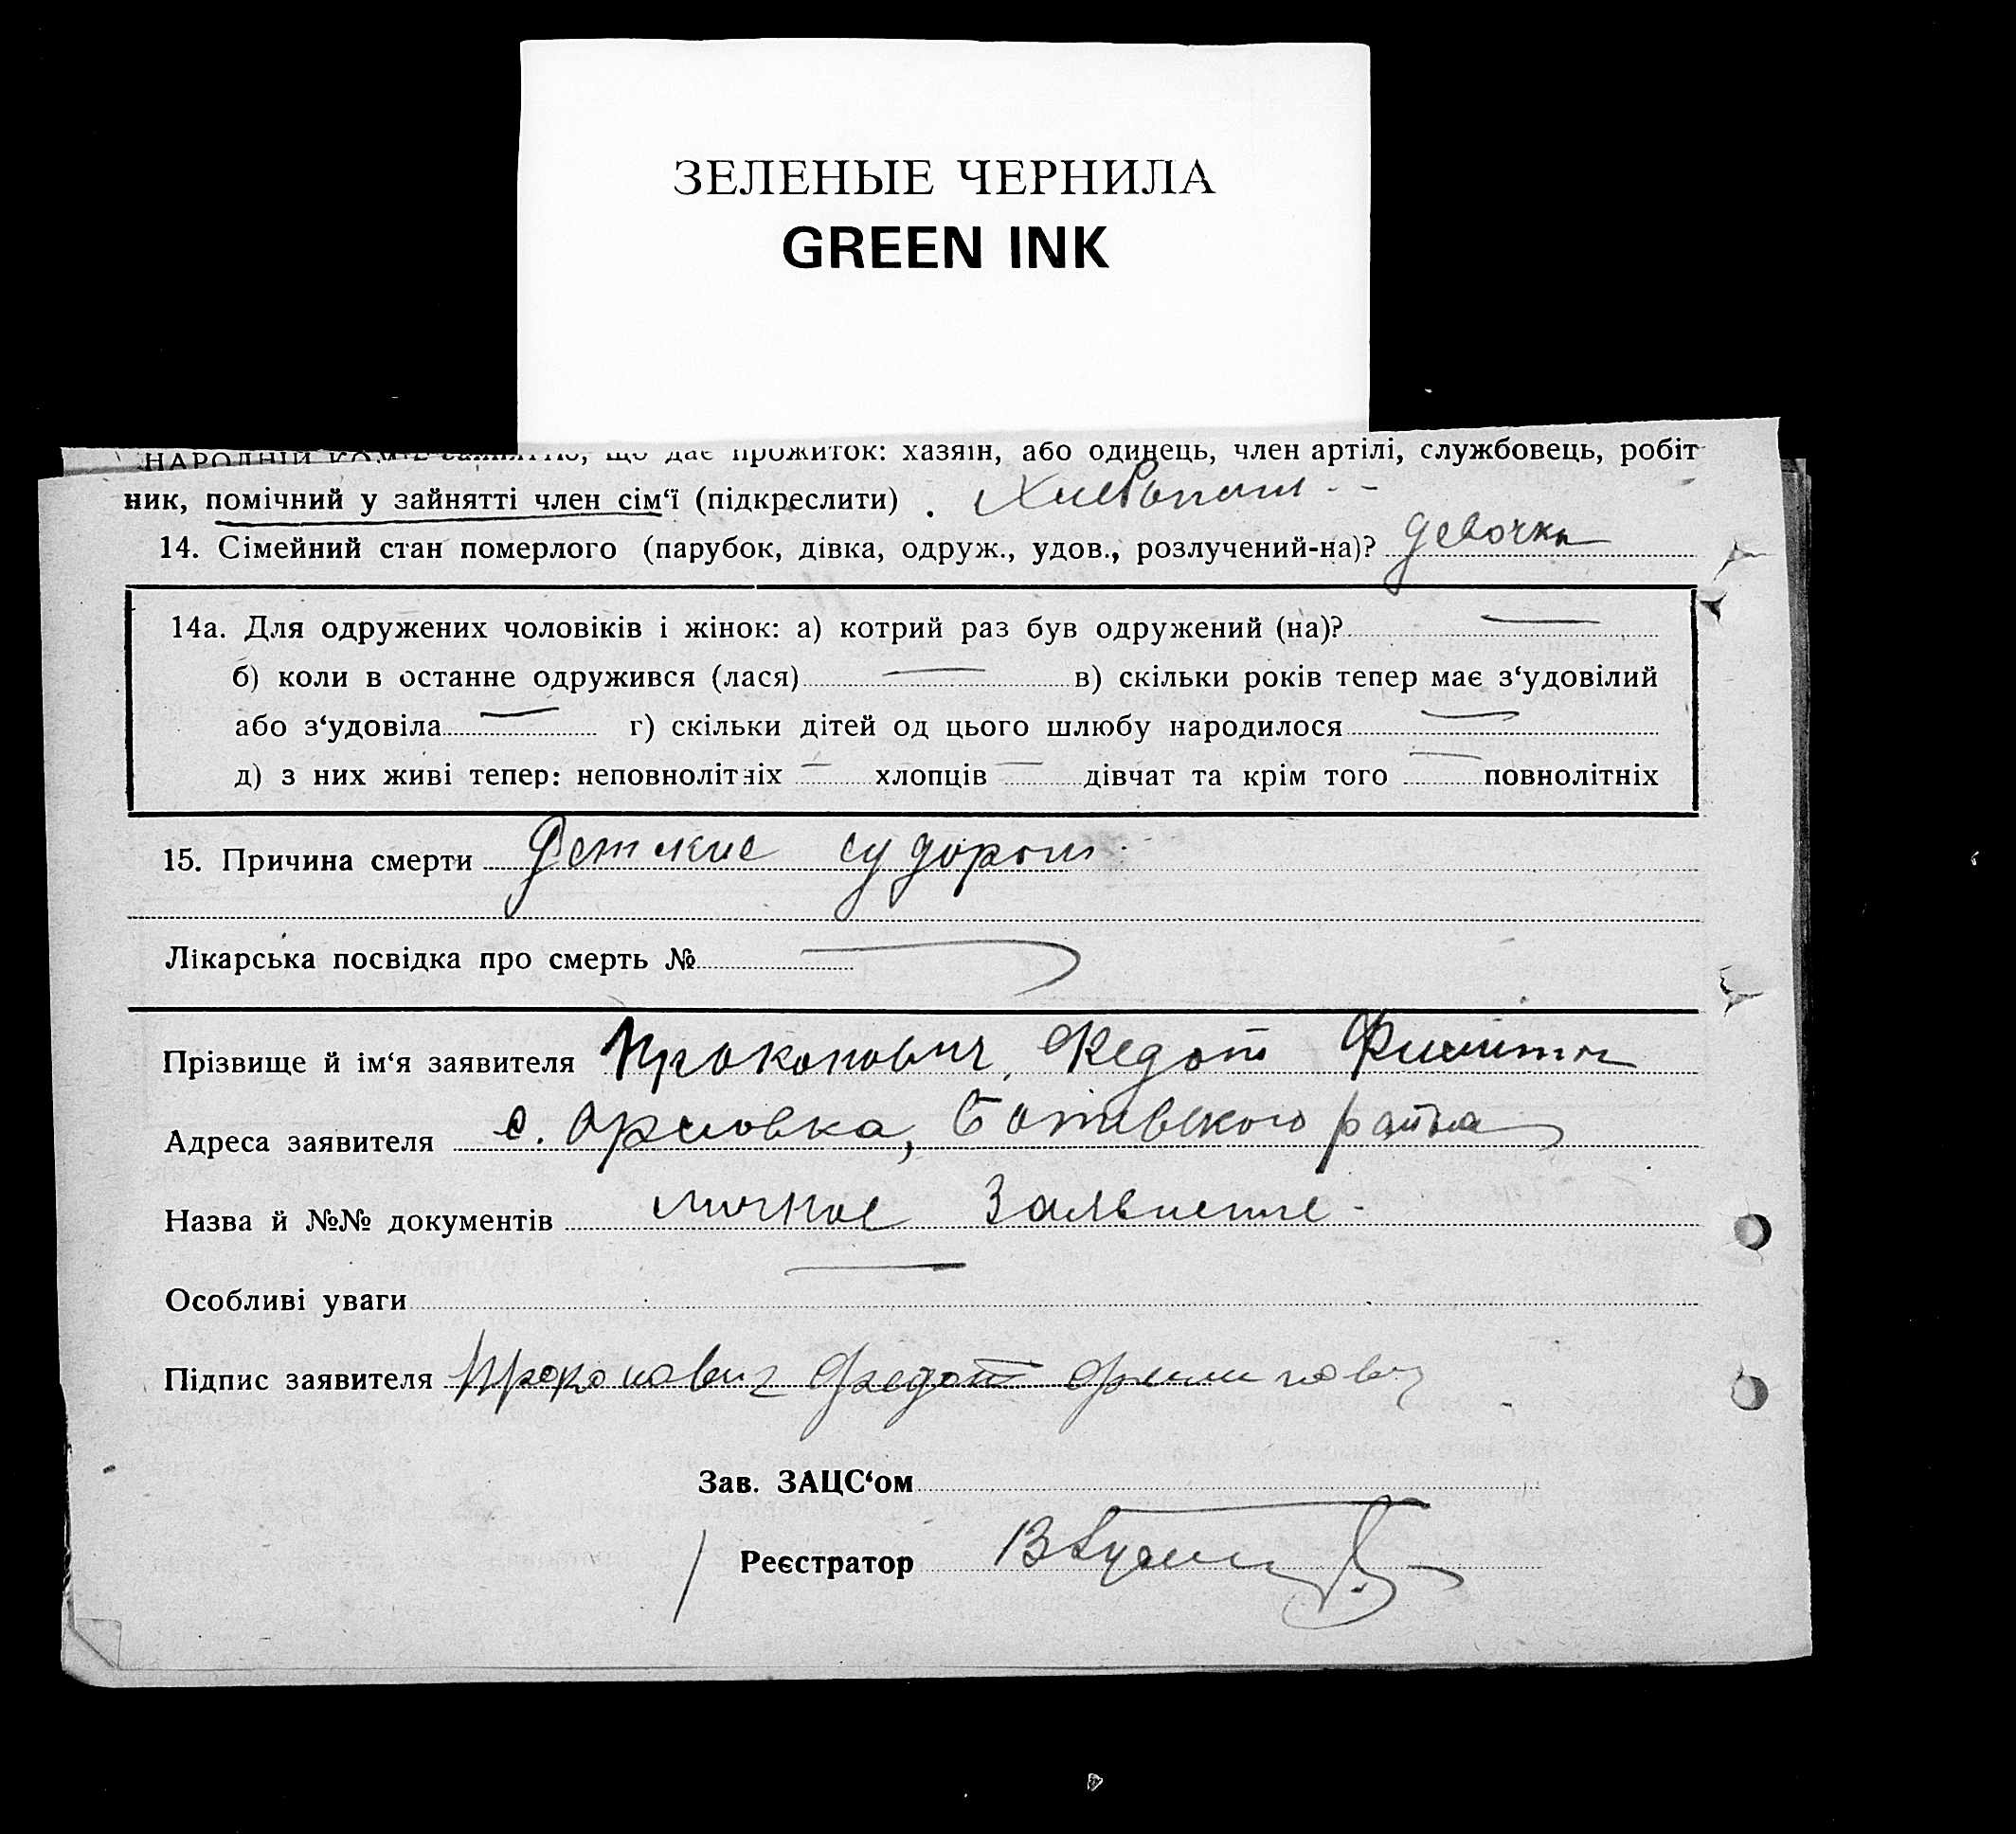 ЗЕЛЕНЫЕ ЧЕРНИЛА
GREEN INK
що дає прожиток: хазяїн, або одинець, член артілі, службовець, робіт
ник, помічний у зайнятті член сім‘ї (підкреслити) .
14. Сімейний стан померлого (парубок, дівка, одруж., удов., розлучений-на)? девочка
14а. Для одружених чоловіків і жінок: а) котрий раз був одружений (на)? —
б) коли в останнє одружився (лася) — в) скільки років тепер має з‘удовілий
або з‘удовіла — г) скільки дітей од цього шлюбу народилося —
д) з них живі тепер: неповнолітніх — хлопців — дівчат та крім того — повнолітніх
15. Причина смерти Детские судороги
Лікарська посвідка про смерть № —
Прізвище й ім‘я заявителя Прокопович, Федот
Адреса заявителя с. Орловка, района
Назва й №№ документів личное заявление -
Особливі уваги —
Підпис заявителя Прокопович Федот
Зав. ЗАЦС‘ом
Реєстратор